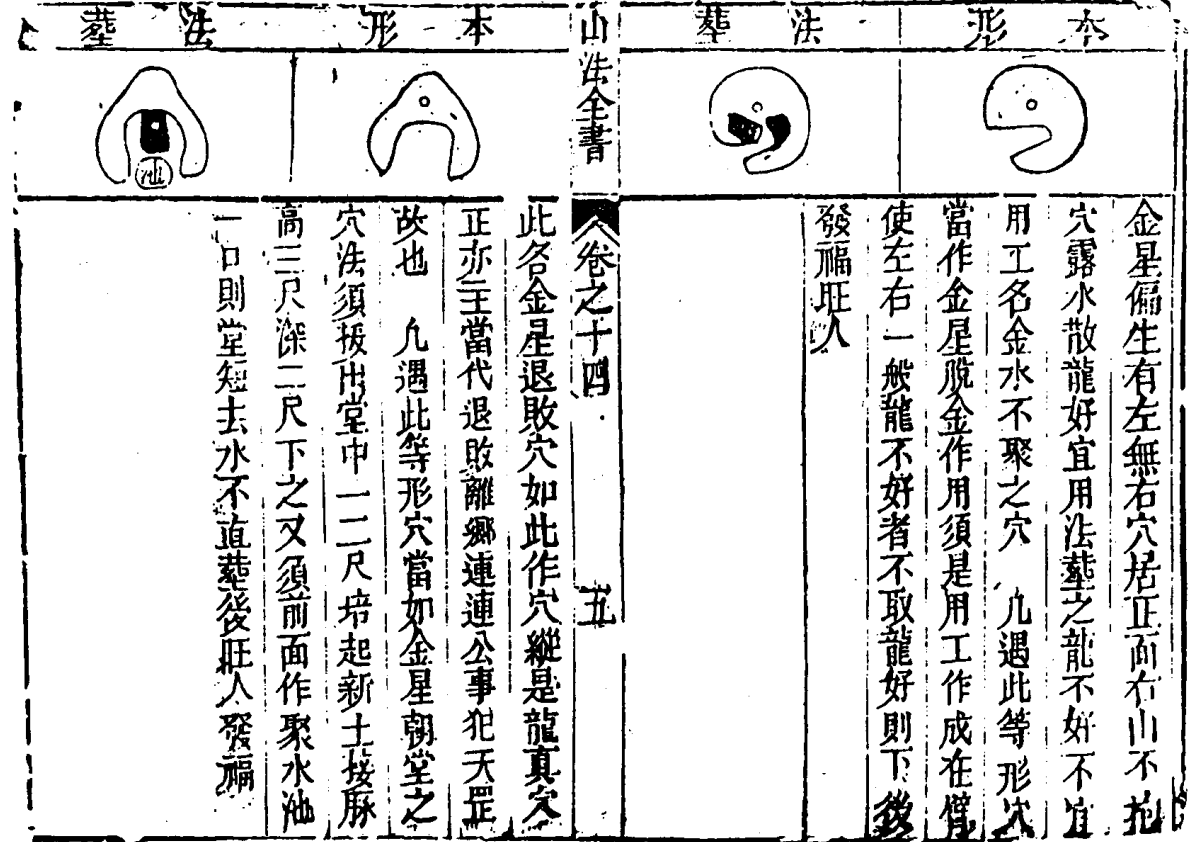 本形
葬法
金星偏生有左無右穴居正面右山不抱
穴露水散龍好宜用法葬之龍不好不宜
用工名金水不聚之穴　凡遇此等形穴
當作金星脫金作用須是用工作成在臂
使左右一般龍不好者不取龍好則下後
發福旺人
山法全書
卷之十四
五
本形
葬法
池
此名金星退敗穴如此作穴縱是龍真穴
正亦主當代退敗離鄉連連公事犯天罡
故也　凡遇此等形穴當如金星朝堂之
穴法須拔出堂中一二尺培起新土接脉
高三尺深二尺下之又須前面作聚水池
一口則堂短去水不直葬後旺人發福